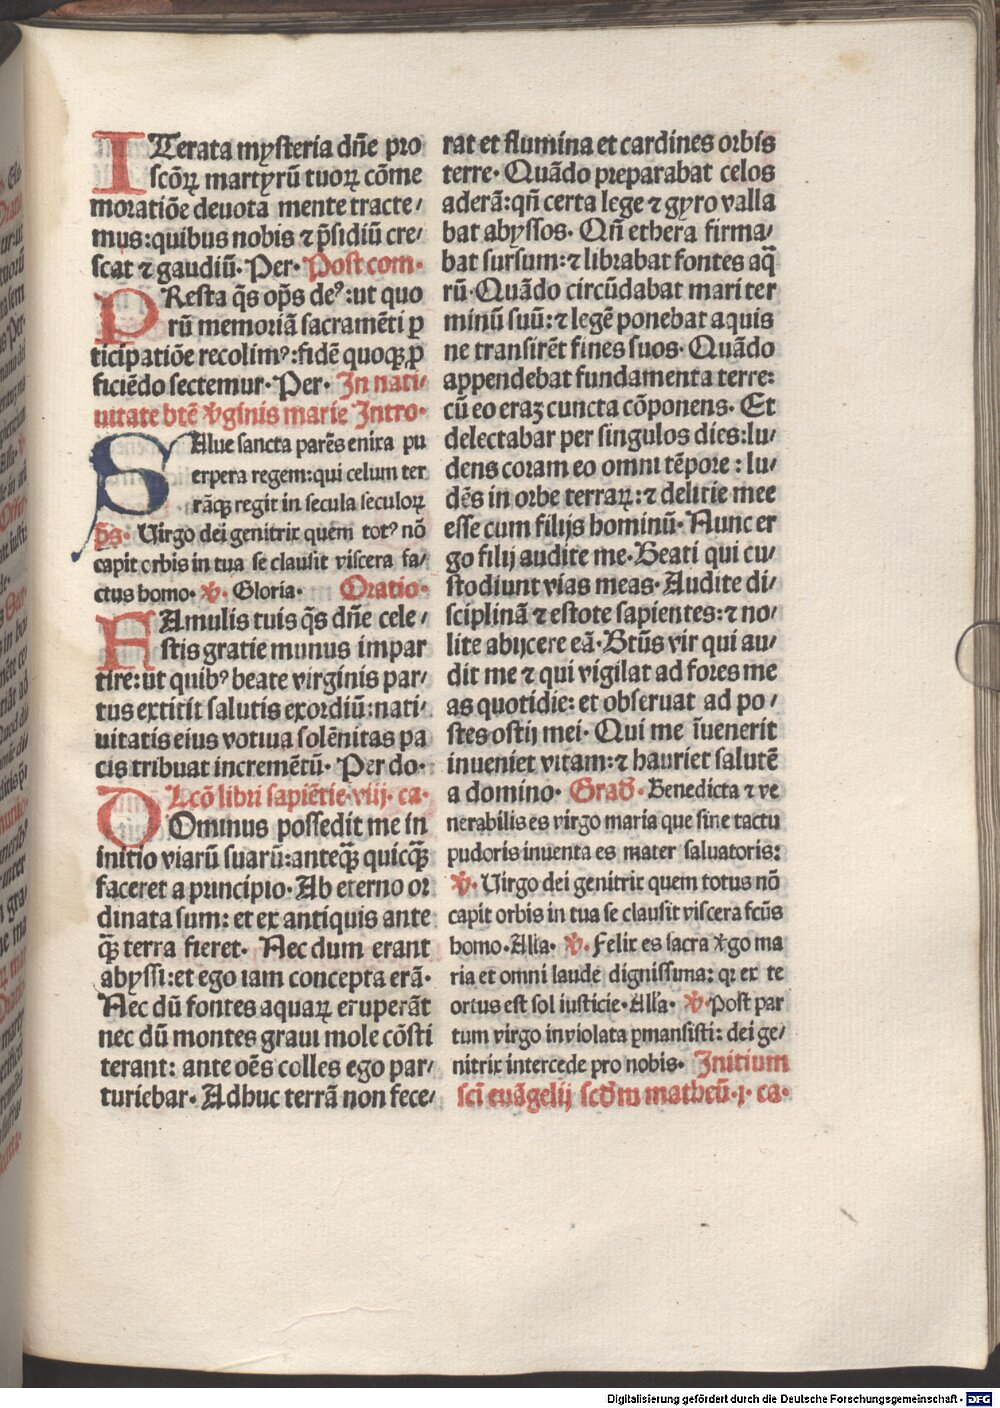 ITerata mysteria dn̄e pro
scōꝝ martyrū tuoꝝ cōme
moratiōe deuota mente tracte⸗
mus:quibus nobis ⁊ p̄sidiū cre⸗
scat ⁊ gaudiū· Per· Post com·
PResta q̄s op̄s deꝰ:ut quo
rū memoriā sacramēti ꝑ
ticipatiōe recolimꝰ:fidē quoqꝫ ꝓ
ficiēdo sectemur· Per· In nati⸗
uitate btē v̄ginis marie Intro·
SAlue sancta parēs enixa pu
erpera regem:qui celum ter
rāqꝫ regit in secula seculoꝝ
p̄s· Uirgo dei genitrix quem totꝰ nō
capit orbis in tua se clausit viscera fa⸗
ctus homo· ℣· Gloria· Oratio·
FAmulis tuis q̄s dn̄e cele⸗
stis gratie munus impar
tire:ut quibꝰ beate virginis par⸗
tus extitit salutis exordiū:nati⸗
uitatis eius votiua solēnitas pa
cis tribuat incremētū· Per do·
Lcō libri sapiētie·viij·ca·
DOminus possedit me in
initio viarū suarū:anteqꝫ̄ quicqꝫ̄
faceret a principio· Ab eterno or
dinata sum: et ex antiquis ante
qꝫ̄ terra fieret· Nec dum erant
abyssi:et ego iam concepta erā·
Nec dū fontes aquaꝝ eruperāt
nec dū montes graui mole cōsti
terant: ante oēs colles ego par⸗
turiebar· Adhuc terrā non fece⸗
rat et flumina et cardines orbis
terre· Quādo preparabat celos
aderā:qn̄ certa lege ⁊ gyro valla
bat abyssos· Qn̄ ethera firma⸗
bat sursum:⁊ librabat fontes aq̄
rū· Quādo circūdabat mari ter
minū suū:⁊ legē ponebat aquis
ne transirēt fines suos· Quādo
appendebat fundamenta terre:
cū eo eraꝫ cuncta cōponens· Et
delectabar per singulos dies:lu⸗
dens coram eo omni tēpore : lu⸗
dēs in orbe terraꝝ:⁊ delitie mee
esse cum filijs hominū· Nunc er
go filij audite me· Beati qui cu⸗
stodiunt vias meas· Audite di⸗
sciplinā ⁊ estote sapientes:⁊ no⸗
lite abijcere eā· Btūs vir qui au⸗
dit me ⁊ qui vigilat ad fores me
as quotidie: et obseruat ad po⸗
stes ostij mei· Qui me īuenerit
inueniet vitam:⁊ hauriet salutē
a domino· Grad̄· Benedicta ⁊ ve
nerabilis es virgo maria que sine tactu
pudoris inuenta es mater saluatoris:
℣· Uirgo dei genitrix quem totus nō
capit orbis in tua se clausit viscera fcūs
homo·Alĺa· ℣· Felix es sacra v̄go ma
ria et omni laude dignissima: qꝛ ex te
ortus est sol iusticie·Alĺa· ℣·Post par
tum virgo inviolata ꝑmansisti: dei ge⸗
nitrix intercede pro nobis· Initium
sc̄i euāgelij scd̄m matheū·j·ca·
Digitalisierung gefördert durch die Deutsche Forschungsgemeinschaft - DFG